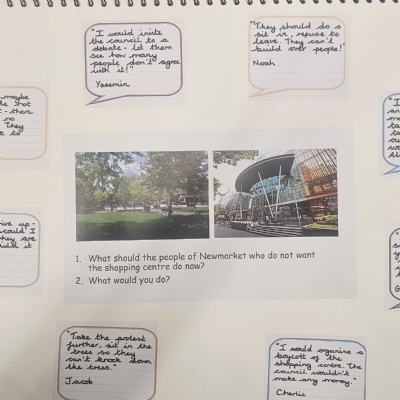 "I would invite
the council to a
debate - let them
see how many
people don't agree
with it!"
Yasemin
"They should do a
sit in, refuse to
leave. They can't
build over people!"
Noah
maybe
shot
there
no
They
to
1. What should the people of Newmarket who do not want
the shopping centre do now?
2. What would you do?
give up -
would I
they are
"Take the protest
further, sit in the
trees so they
can't knock down
the trees."
Jacob
"I would organise a
boycott of the
shopping centre. The
council wouldn't
make any money."
Charlie